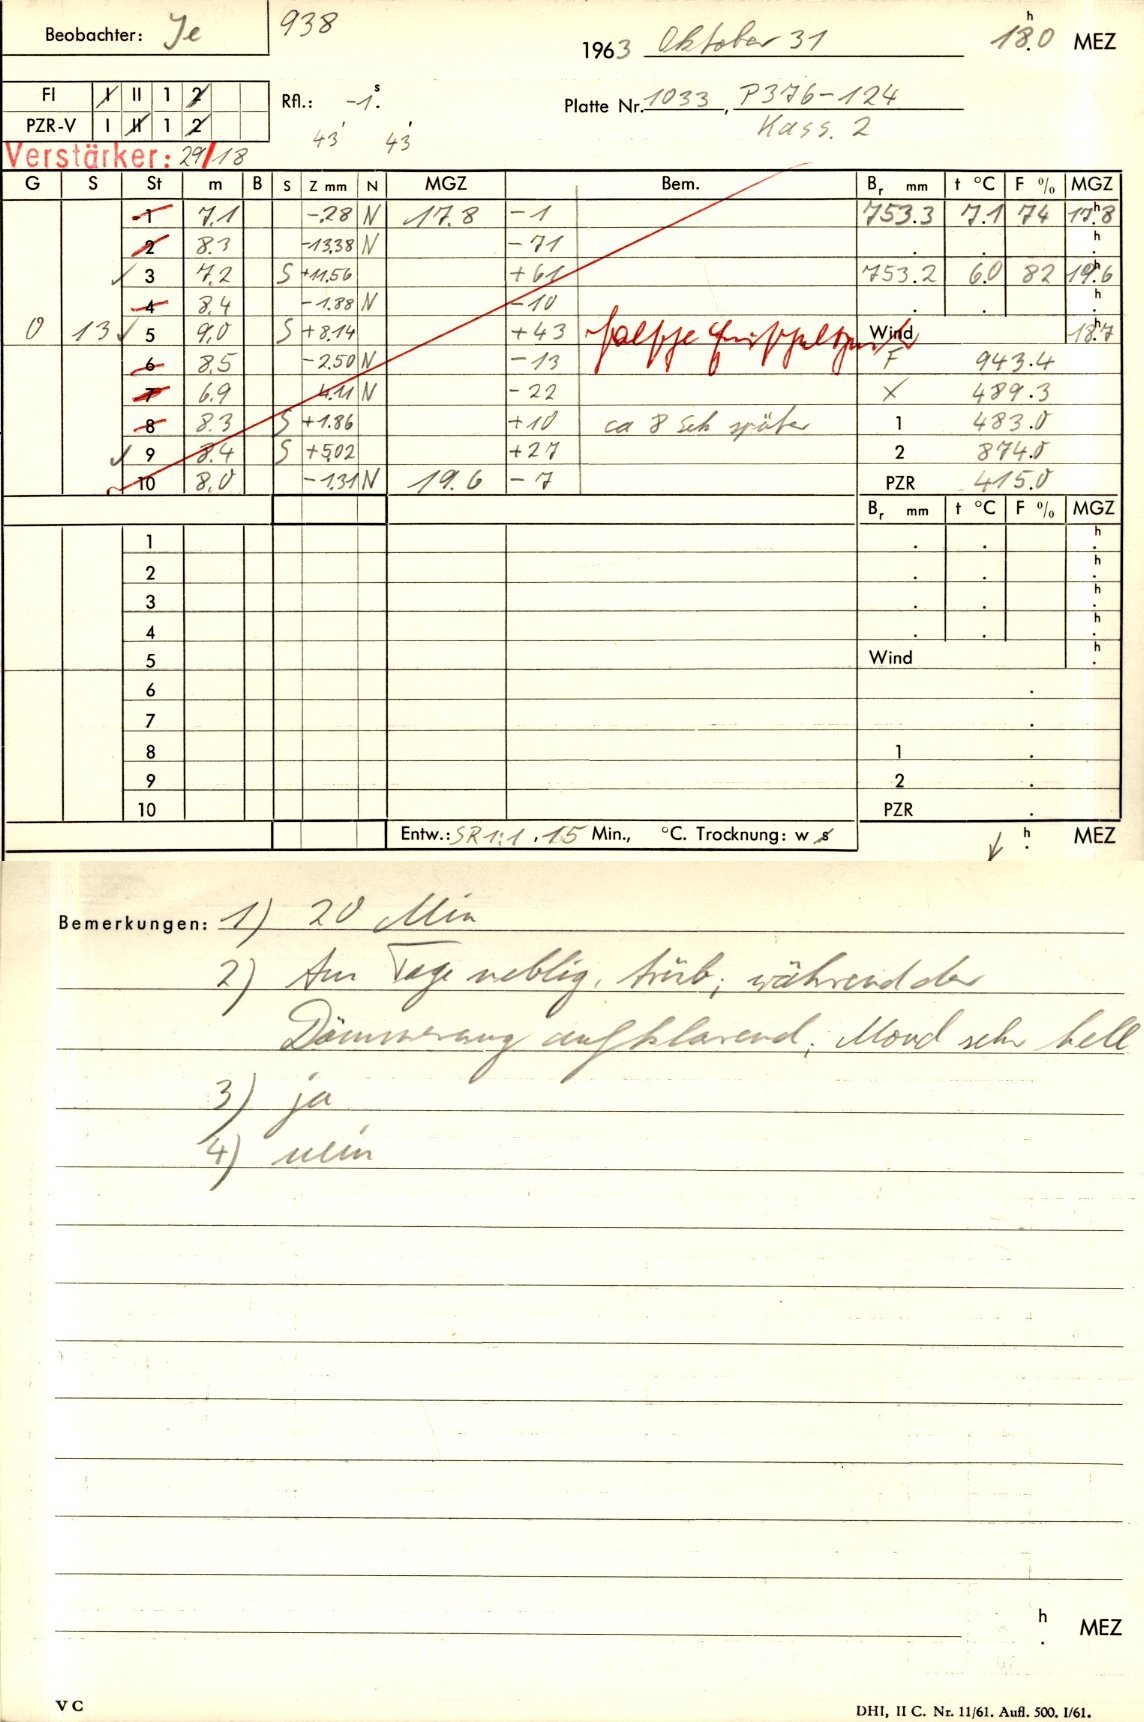 Beobachter: Je 938 1963 Oktober 31 18.0 h MEZ
FI I II 1 2 Rfl.: -1.s Platte Nr. 1033, P376-124
PZR-V I II 1 2 43 43 Kass. 2
Verstärker: 29/18
G S St m B S Z mm N MGZ Bem. Br mm t °C F % MGZ
1 7.1 -.28 N 17.8 -1 753.3 7.1 74 17.8 h
2 8.3 -13.38 N -71 . . h
✓ 3 7.2 S +11.56 +61 753.2 6.0 82 19.6 h
4 8.4 -1.88 N -10 . . h
0 13 ✓ 5 9.0 S +8.14 +43 falsche Wind 18.7 h
6 8.5 -2.50 N -13 F 943.4
7 6.9 4.11 N -22 X 489.3
8 8.3 S +1.86 +10 ca 8 Sek später 1 483.0
✓ 9 8.4 S +5.02 +27 2 874.0
10 8.0 -1.31 N 19.6 -7 PZR 415.0
Br mm t °C F % MGZ
1 . . h
2 . . h
3 . . h
4 . . h
5 Wind h
6 .
7 .
8 1 .
9 2 .
10 PZR .
Entw.: SR 1:1, 15 Min., °C. Trocknung: w s h MEZ
Bemerkungen: 1) 20 Min
2) Am Tage neblig, trüb; während der
Dämmerung aufklarend; Mond sehr hell
3) ja
4) nein
h MEZ
V C DHI, II C. Nr. 11/61. Aufl. 500. I/61.